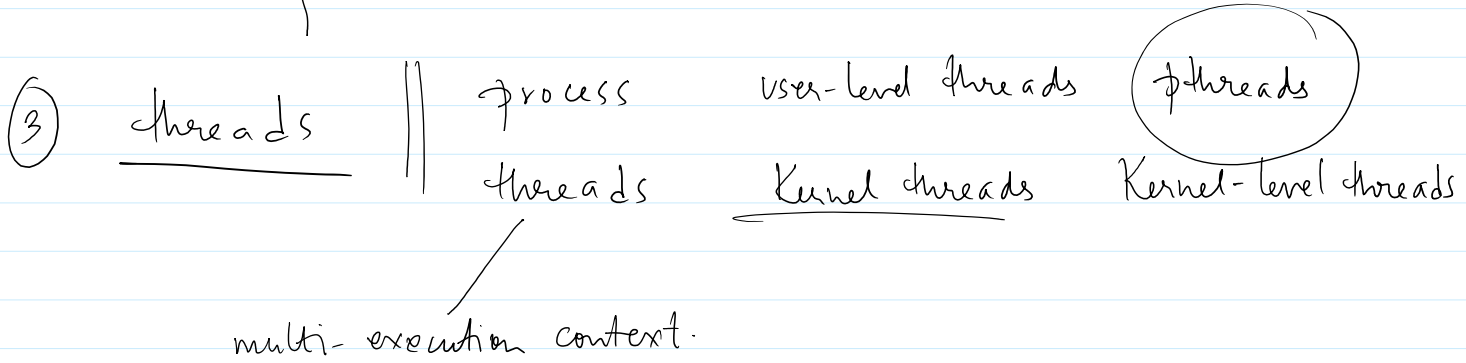 ③ threads || process user-level threads pthreads
threads Kernel threads Kernel-level threads
multi-execution context.